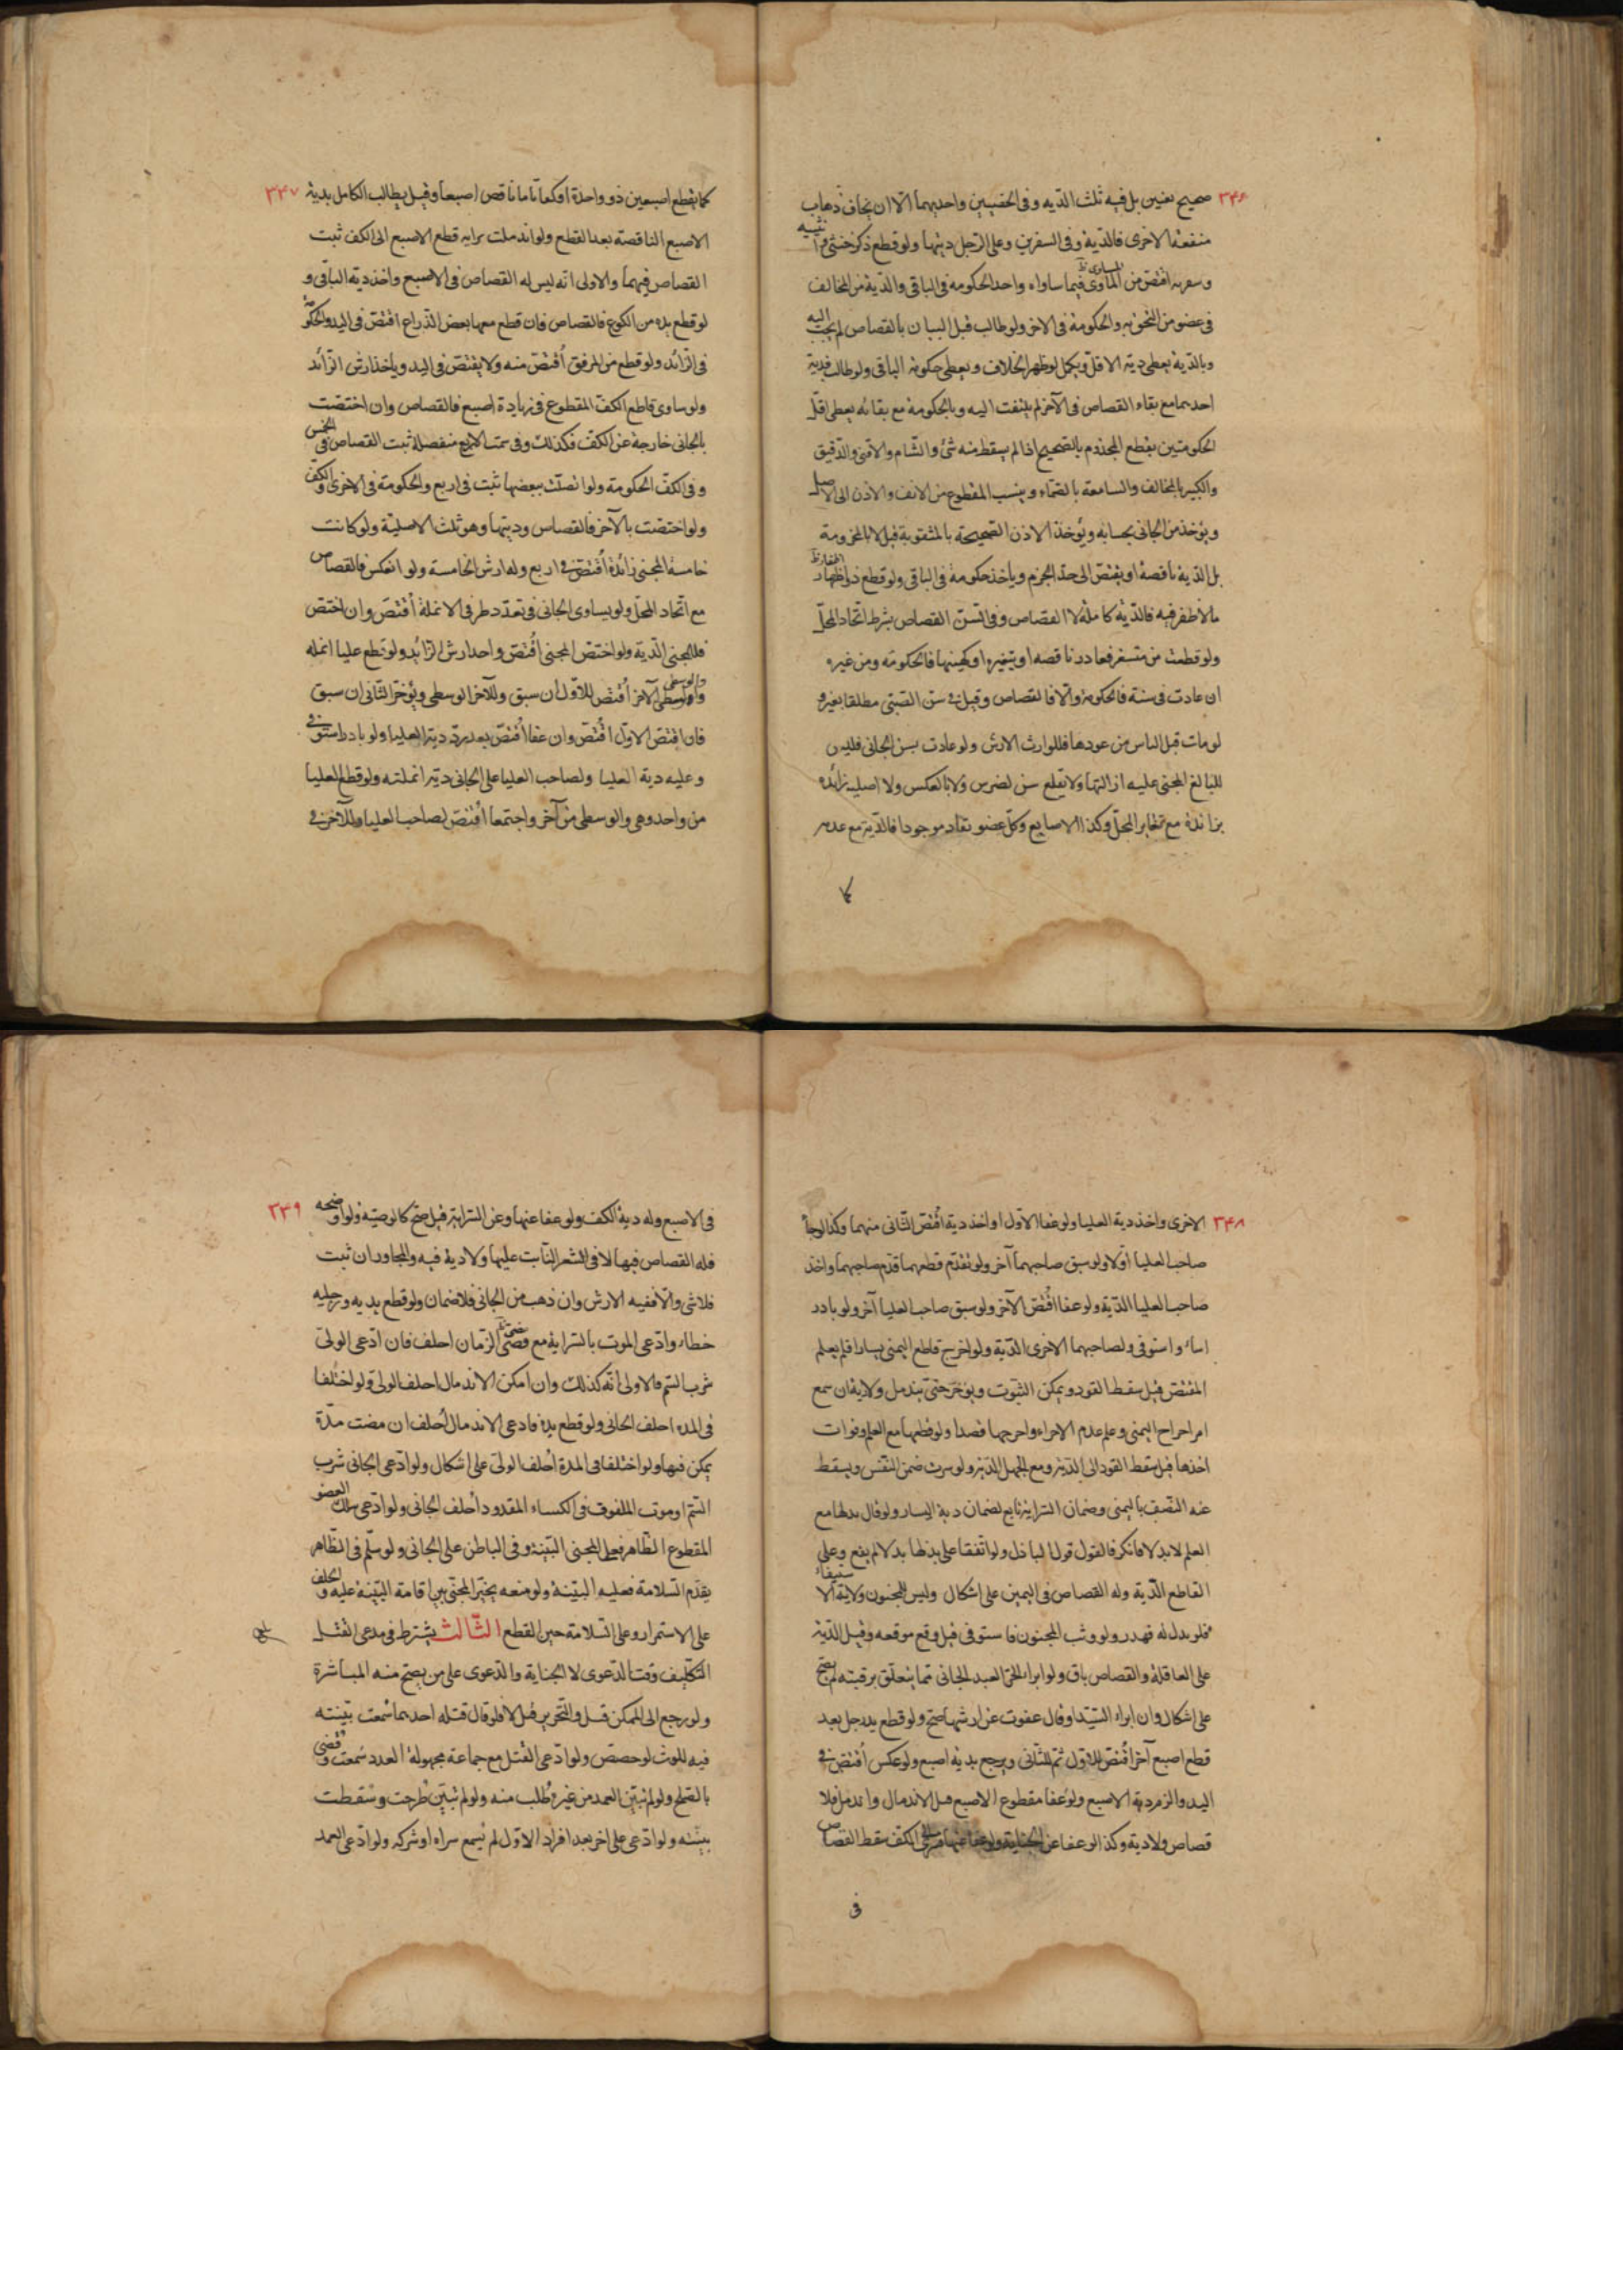 ٣٤۶ صحيح بعنين بل فيه ثلث الديه وفى الخصيتين واحديهما الا ان يخاف ذهاب
منفعة الاخرى فالدية وفى الشفرين وعلى الرجل ديتها ولو قطع ذكر خنثى وانثييه
وشفريه اقتص من المساوى فيما ساواه واخذ الحكومه فى الباقى والدية من المخالف
فى عضو من النحو به والحكومة فى الاخر ولو طالب قبل البيان بالقصاص لم يجب اليه
وبالدية يعطى دية الاقل ويكمل لو ظهر الخلاف ويعطى حكومة الباقى ولو طالب بدية
احديهما مع بقاء القصاص فى الآخر لم يلتفت اليه وبالحكومة مع بقائه يعطى اقل
الحكومتين يقطع المجذوم بالصحيح اذا لم يسقط منه شئ والشام والاقنى والدقيق
والكبير بالمخالف والسامعة بالصماء وينسب المقطوع من الانف والاذن الى الاصل
ويؤخذ من الجانى بحسابه ويؤخذ الاذن الصحيحة بالمثقوبة قيل لا بالمخرومة
بل الدية ناقصة او يقتص الى حد الخرم وياخذ حكومة فى الباقى ولو قطع ذو اظفار
مالا ظفر فيه فالدية كاملة لا القصاص وفى السن القصاص بشرط اتحاد المحل
ولو قطعت من متسغر فعادت ناقصه او متغيره او كهيئتها فالحكومة ومن غيره
ان عادت فى سنة فالحكومة والا فالقصاص وقيل فى سن الصبى مطلقا بعير و
لو مات قبل الياس من عودها فللوارث الارش ولو عادت بسن الجانى فليس
للبالغ المجنى عليه ازالتها ولا تقلع سن لضرس ولا بالعكس ولا اصليه زائده
بزائدة مع تغاير المحل وكذا الاصابع وكل عضو يقاد موجودا فالدية مع عدمه
كما
٣٤٧ كما يقطع اصبعين ذو واحدة او كفا تاما ناقص اصبعا وقيل يطالب الكامل بدية
الاصبع الناقصة بعد القطع ولو اندملت سراية قطع الاصبع الى الكف ثبت
القصاص فيهما والاولى انه ليس له القصاص فى الاصبع واخذ دية الباقى و
لو قطع يده من الكوع فالقصاص فان قطع معها بعض الذراع اقتص فى اليد والحكومة
فى الزائد ولو قطع من المرفق اقتص منه ولا يقتص فى اليد وياخذ ارش الزائد
ولو ساوى قاطع الكف المقطوع فى زيادة اصبع فالقصاص وان اختصت
بالجانى خارجة عن الكف فكذلك وفى سمت الاصابع منفصلة ثبت القصاص فى الخمس
وفى الكف الحكومة ولو اتصلت ببعضها ثبت فى اربع والحكومة فى الاخرى والكف
ولو اختصت بالآخر فالقصاص وديتها وهو ثلث الاصلية ولو كانت
خامسة المجنى زائدة اقتص فى اربع وله ارش الخامسة ولو انعكس فالقصاص
مع اتحاد المحل ولو يساوى الجانى فى تعدد طرفى الانملة اقتص وان اختص
فللمجنى الدية ولو اختص المجنى اقتص واخذ ارش الزائد ولو قطع عليا انمله
والوسطى الآخر اقتص للاول ان سبق وللآخر الوسطى ويؤخر الثانى ان سبق
فان اقتص الاول اقتص وان عفا اقتص بعد رد دية العليا ولو بادر استوفى
وعليه دية العليا ولصاحب العليا على الجانى دية انملته ولو قطع العليا
من واحد وهى والوسطى من آخر واجتمعا اقتص لصاحب العليا وللآخر فى
٣٤٨ الاخرى واخذ دية العليا ولو عفا الاول او اخذ دية اقتص الثانى منهما وكذا لو جاء
صاحب العليا اولا ولو سبق صاحبهما آخر ولو تقدم قطعهما قدم صاحبهما واخذ
صاحب العليا الدية ولو عفا اقتص الآخر ولو سبق صاحب العليا آخر ولو بادر
اساء واستوفى ولصاحبهما الاخرى الدية ولو اخرج قاطع اليمنى يسارا فلم يعلم
المقتص قيل سقط القود ويمكن الثبوت ويؤخر حتى يندمل ولا دية ان سمع
امر اخراج اليمنى وعلم عدم الاجزاء واخرجها قصدا ولو قطعها مع العلم وفوات
اخذها قيل سقط القود الى الدية ومع الجهل الدية ولو سرت ضمن النفس ويسقط
عنه النصف باليمنى وضمان السراية تابع لضمان دية اليسار ولو قال بدلها مع
العلم لا بدلا فانكر فالقول قول الباذل ولو اتفقا على بذلها بدلا لم يقع وعلى
القاطع الدية وله القصاص فى اليمين على اشكال وليس للمجنون ولاية الاستيفاء
فلو بذل له فهدر ولو وثب المجنون فاستوفى قيل وقع موقعه وقيل الدية
على العاقلة والقصاص باق ولو ابراء الحر العبد الجانى مما يتعلق برقبته لم يصح
على اشكال وان ابراء السيد او قال عفوت عن ارشها صح ولو قطع يد رجل بعد
قطع اصبع آخر اقتص للاول ثم للثانى ويرجع بدية اصبع ولو عكس اقتص فى
اليد والزم دية الاصبع ولو عفا مقطوع الاصبع قبل الاندمال واندمل فلا
قصاص ولا دية وكذا لو عفا عن الجناية ولو عفا عنها فسرى الى الكف سقط القصاص
فى
٣٤٩ فى الاصبع وله دية الكف ولو عفا عنها وعن السراية قيل صح كالوصية ولو اوضحه
فله القصاص فيها لا فى الشعر النابت عليها ولا دية فيه والمجاور ان ثبت
فلا شئ والا ففيه الارش وان ذهب من الجانى فلا ضمان ولو قطع يديه ورجليه
خطاء وادعى الموت بالسراية مع قصر الزمان احلف فان ادعى الولى
شرب السم فالاولى انه كذلك وان امكن الاندمال احلف الولى ولو اختلفا
فى المدة احلف الجانى ولو قطع يده فادعى الاندمال احلف ان مضت مدة
يمكن فيها ولو اختلفا فى المدة احلف الولى على اشكال ولو ادعى الجانى شرب
السم او موت الملفوف فى الكساء المقدود احلف الجانى ولو ادعى شلل العضو
المقطوع الظاهر فعلى المجنى البينة وفى الباطن على الجانى ولو سلم فى الظاهر
بقدم السلامة فعليه البينة ولو منعه يخير المجنى بين اقامة البينة عليه والحلف
على الاستمرار وعلى السلامة حين القطع الثالث يشترط فى مدعى القتل
التكليف وقت الدعوى لا الجناية والدعوى على من يصح منه المباشرة
ولو رجع الى الممكن قبل والتحرير قيل لا فلو قال قتله احدهما سمعت بينته
فيه للوث لو خصص ولو ادعى القتل مع جماعة مجهولة العدد سمعت وقضى
بالصلح ولو لم تبين العمد من غيره طلب منه ولو لم تبين طرحت وسقطت
بينته ولو ادعى على اخر بعد افراد الاول لم يسمع براه او شركه ولو ادعى العمد